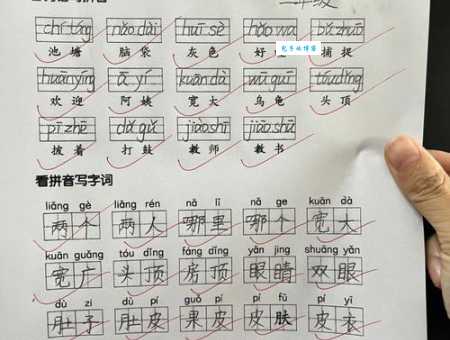 chí táng nǎo dài huī sè hǎo wa bǔ zhuō
池塘 脑袋 灰色 好 捕捉
huān yíng ā yí kuān dà wū guī tóu dǐng
欢迎 阿姨 宽大 乌龟 头顶
pī zhē dǎ gǔ jiào shī jiāo shū
披着 打鼓 教师 教书
看拼音写字词
liǎng gè liǎng rén nǎ lǐ nǎ ge kuān dà
两个 两人 哪里 哪个 宽大
kuān guǎng tóu dǐng fáng dǐng yǎn jing shuāng yǎn
宽广 头顶 房顶 眼睛 双眼
dù zi dù pí guǒ pí pí fū pí yī
肚子 肚皮 果皮 皮肤 皮衣